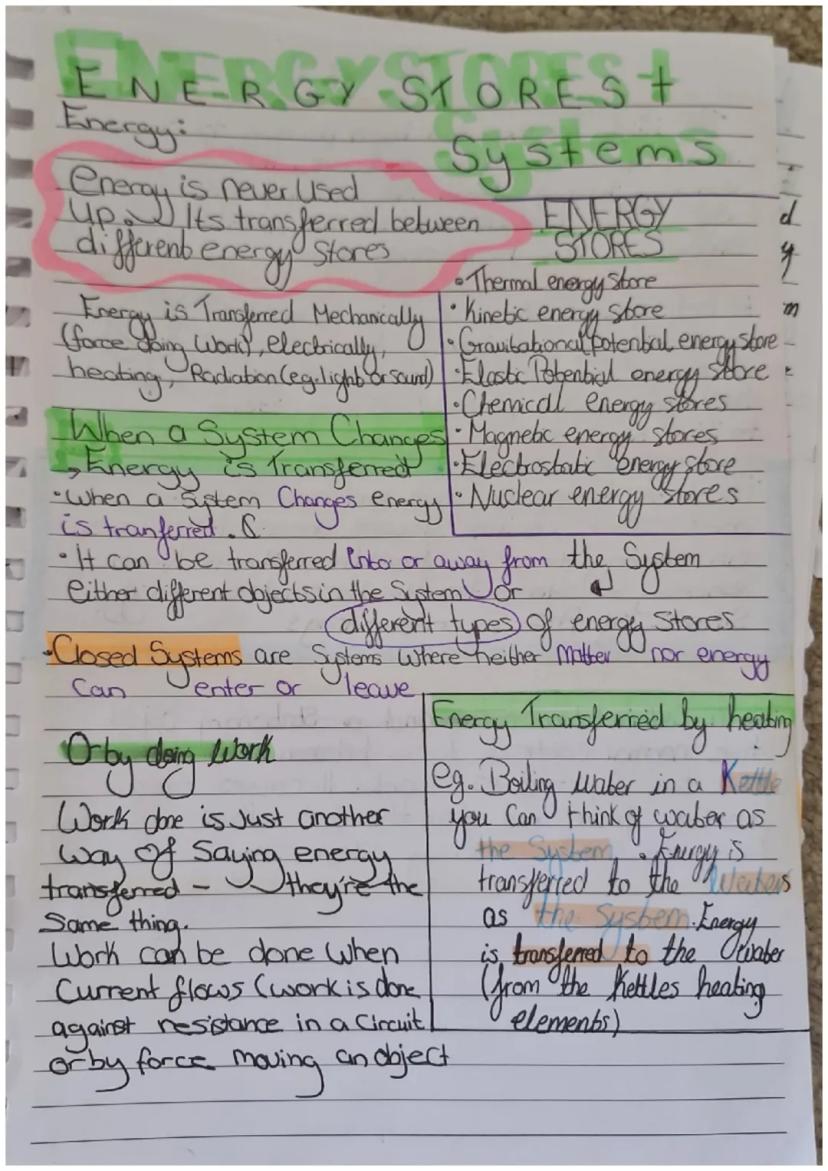 ENERGY STORES +
Systems
Energy:
Energy is never Used
up. Its transferred between
different energy Stores
ENERGY
STORES
• Thermal energy store
• Kinetic energy store
• Gravitational potential energy store
• Elastic Potential energy store
• Chemical energy stores
• Magnetic energy stores
• Electrostatic energy store
• Nuclear energy stores
Energy is Transferred Mechanically
(force doing work), electrically,
heating, Radiation (eg. light or sound)
When a System Changes
↳ Energy is Transferred
• When a System Changes energy
is tranferred.
• It can be transferred Into or away from the System
Either different objects in the System Or
different types of energy Stores
• Closed Systems are Systems where neither Matter nor energy
Can enter or leave
Or by doing work
Work done is Just another
Way Of Saying energy
transferred - they're the
Same thing.
Work can be done when
Current flows (work is done
against resistance in a Circuit
or by force moving an object
Energy Transferred by heating
eg. Boiling water in a Kettle
you Can think of water as
the System. Energy is
transferred to the Waters
as the System. Energy
is transferred to the Water
(from the Kettles heating
elements)
d
y
m